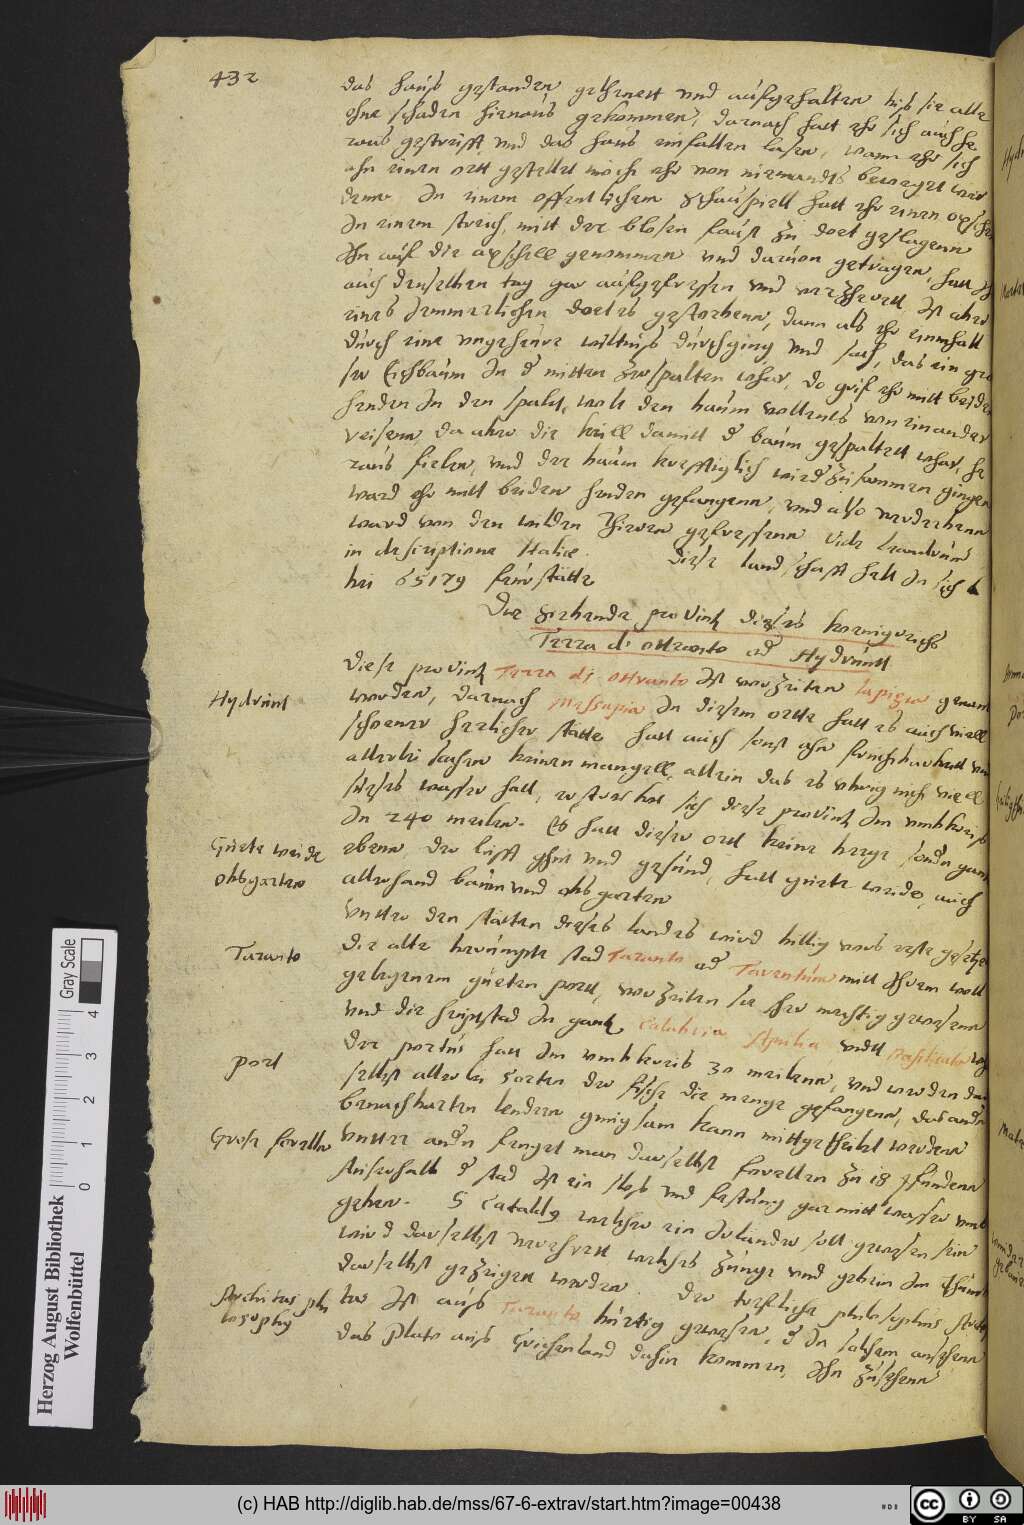 432
das hauß gestanden gesteuert und aufgehalten biß sie alle
ohne schaden hinauß gekommen, darnach hatt ehr sich auch he
rauß gestreifft und das hauß einfallen lasen, wann ehr sich
ahn einen ortt gestellet moch ehr von niemandts beweget wer
denn. In einem offentlichem schauspiell hatt ehr einen ochsen
In einem streich, mitt der blosen faust zu doet geslagenn
Ihn auf die achschell genommen und daruon getragen, hatt Ih
auch denselben tag gar aufgefressen und verzehrett. Ist aber
eines Jemmerlichen doets gestorbenn, dann als ehr einmhall
durch eine ungeheure wiltnuß durchging und sach, das ein gro
ser Eichbaum In d mitten zerspalten whar, do grif ehr mitt beiden
henden In den spalt, wolt den baum vollents von einander
reisenn, da aber die keill damitt d baum gespaltett whar, he
rauß fielen, und der baum kreftiglich wird zusammen gingen
ward ehr mitt beiden henden gefangenn, und also verderbenn
ward von den wilden thieren gefressenn vide Leandrum
in descriptione Italiæ. Diese landschafft hatt In sich b
bei 65179 feurstätte
Die zehende provintz dieses koenigreichs
Terra di ottranto od Hydrunt
Diese provintz Terra di ottranto Ist vorzeiten Iapigia genant
worden, darnach Messapia In diesem ortte hatt es auch viell
Hydrunt
schoener herlicher stätte hatt auch sonst ahn fruchtbarkeitt und
allerlei sachen keinen mangell, allein das es wenig nich viell
süeses wasser hatt, erstrecket sich diese provintz Im umbkreiß
In 240 meilen. Es hatt dieser ort keine berge sondn gantz
Guete weide
ebenn der lufft guet und gesund, hatt guete weide, auch
obsgarten
allerhand baum und obsgarten
Untter den stätten dieses landes wird billig vors erste gesetzet
Taranto
die alte beruempte stad Taranto od Tarentum mitt Ihrem woll
gelegenem gueten port, vorzeiten ser sehr mechtig gewesenn
und die heuptstad In gantz Calabria Apulia undtt
port
Der portus hatt Im umbkreiß 30 meilenn, und werden da
selbst allerlei sorten der fische die menge gefangenn, das andn
benachbarten lendern gnugsam kann mittgetheilet werdenn
Grose forellen
Untter andn fenget man daselbst forellen zu 18 pfundenn
auserhalb d stad Ist ein sloß und festung gar mitt wasser umb
geben. S Cataldus welcher ein Irlender soll gewesen sein
wird daselbst verehrett welches zunge und gebein Im thum
daselbst gezeigett werden. Der trefliche philosophus Archi
Architas phi
losophus
tas Ist auß Taranto bürtig gewesen, d In solchem ansehenn
das Plato auß Griechenland dahin kommen, Ihn zusehenn
Herzog August Bibliothek
Wolfenbüttel
Gray Scale
0 1 2 3 4
(c) HAB http://diglib.hab.de/mss/67-6-extrav/start.htm?image=00438
BY SA